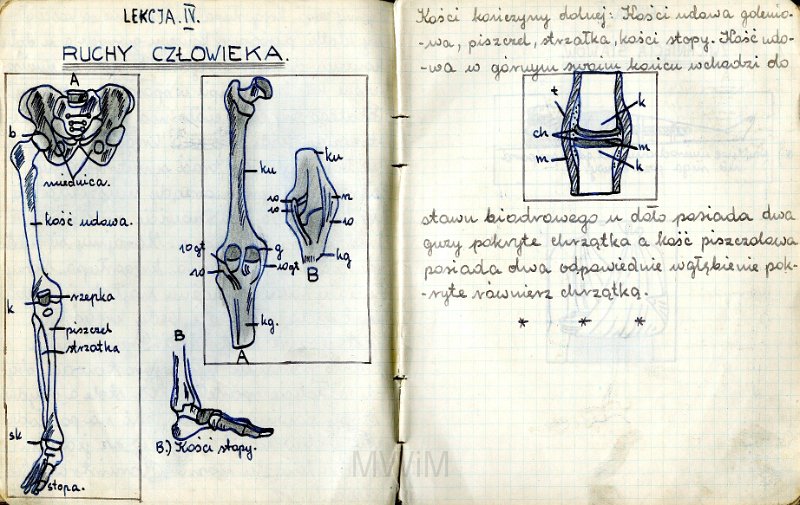 LEKCJA.IV.
RUCHY CZŁOWIEKA.
A
b
miednica.
kość udowa.
k
rzepka
piszczel
strzałka
sk
stopa.
ku
ku
w
w
n
w
kg
B
wgt
g
w
wgt
kg.
A
B
B.) Kości stopy.
Kości kończyny dolnej: Kości udowa golenio-
-wa, piszczel, strzałka, kości stopy. Kość udo-
-wa w górnym swoim końcu wchodzi do
t
k
ch
m
m
k
stawu biodrowego u dołu posiada dwa
guzy pokryte chrząstka a kość piszczelowa
posiada dwa odpowiednie wgłębienie pok-
-ryte również chrząstką.
* * *
MWiM